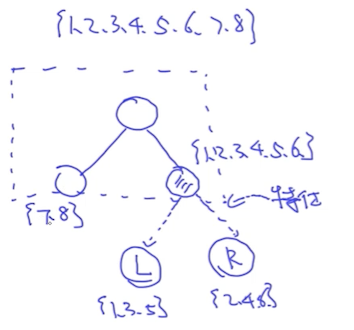 {1.2.3.4.5.6.7.8}
{1.2.3.4.5.6}
{7.8}
特征
L
R
{1.3.5}
{2.4.6}